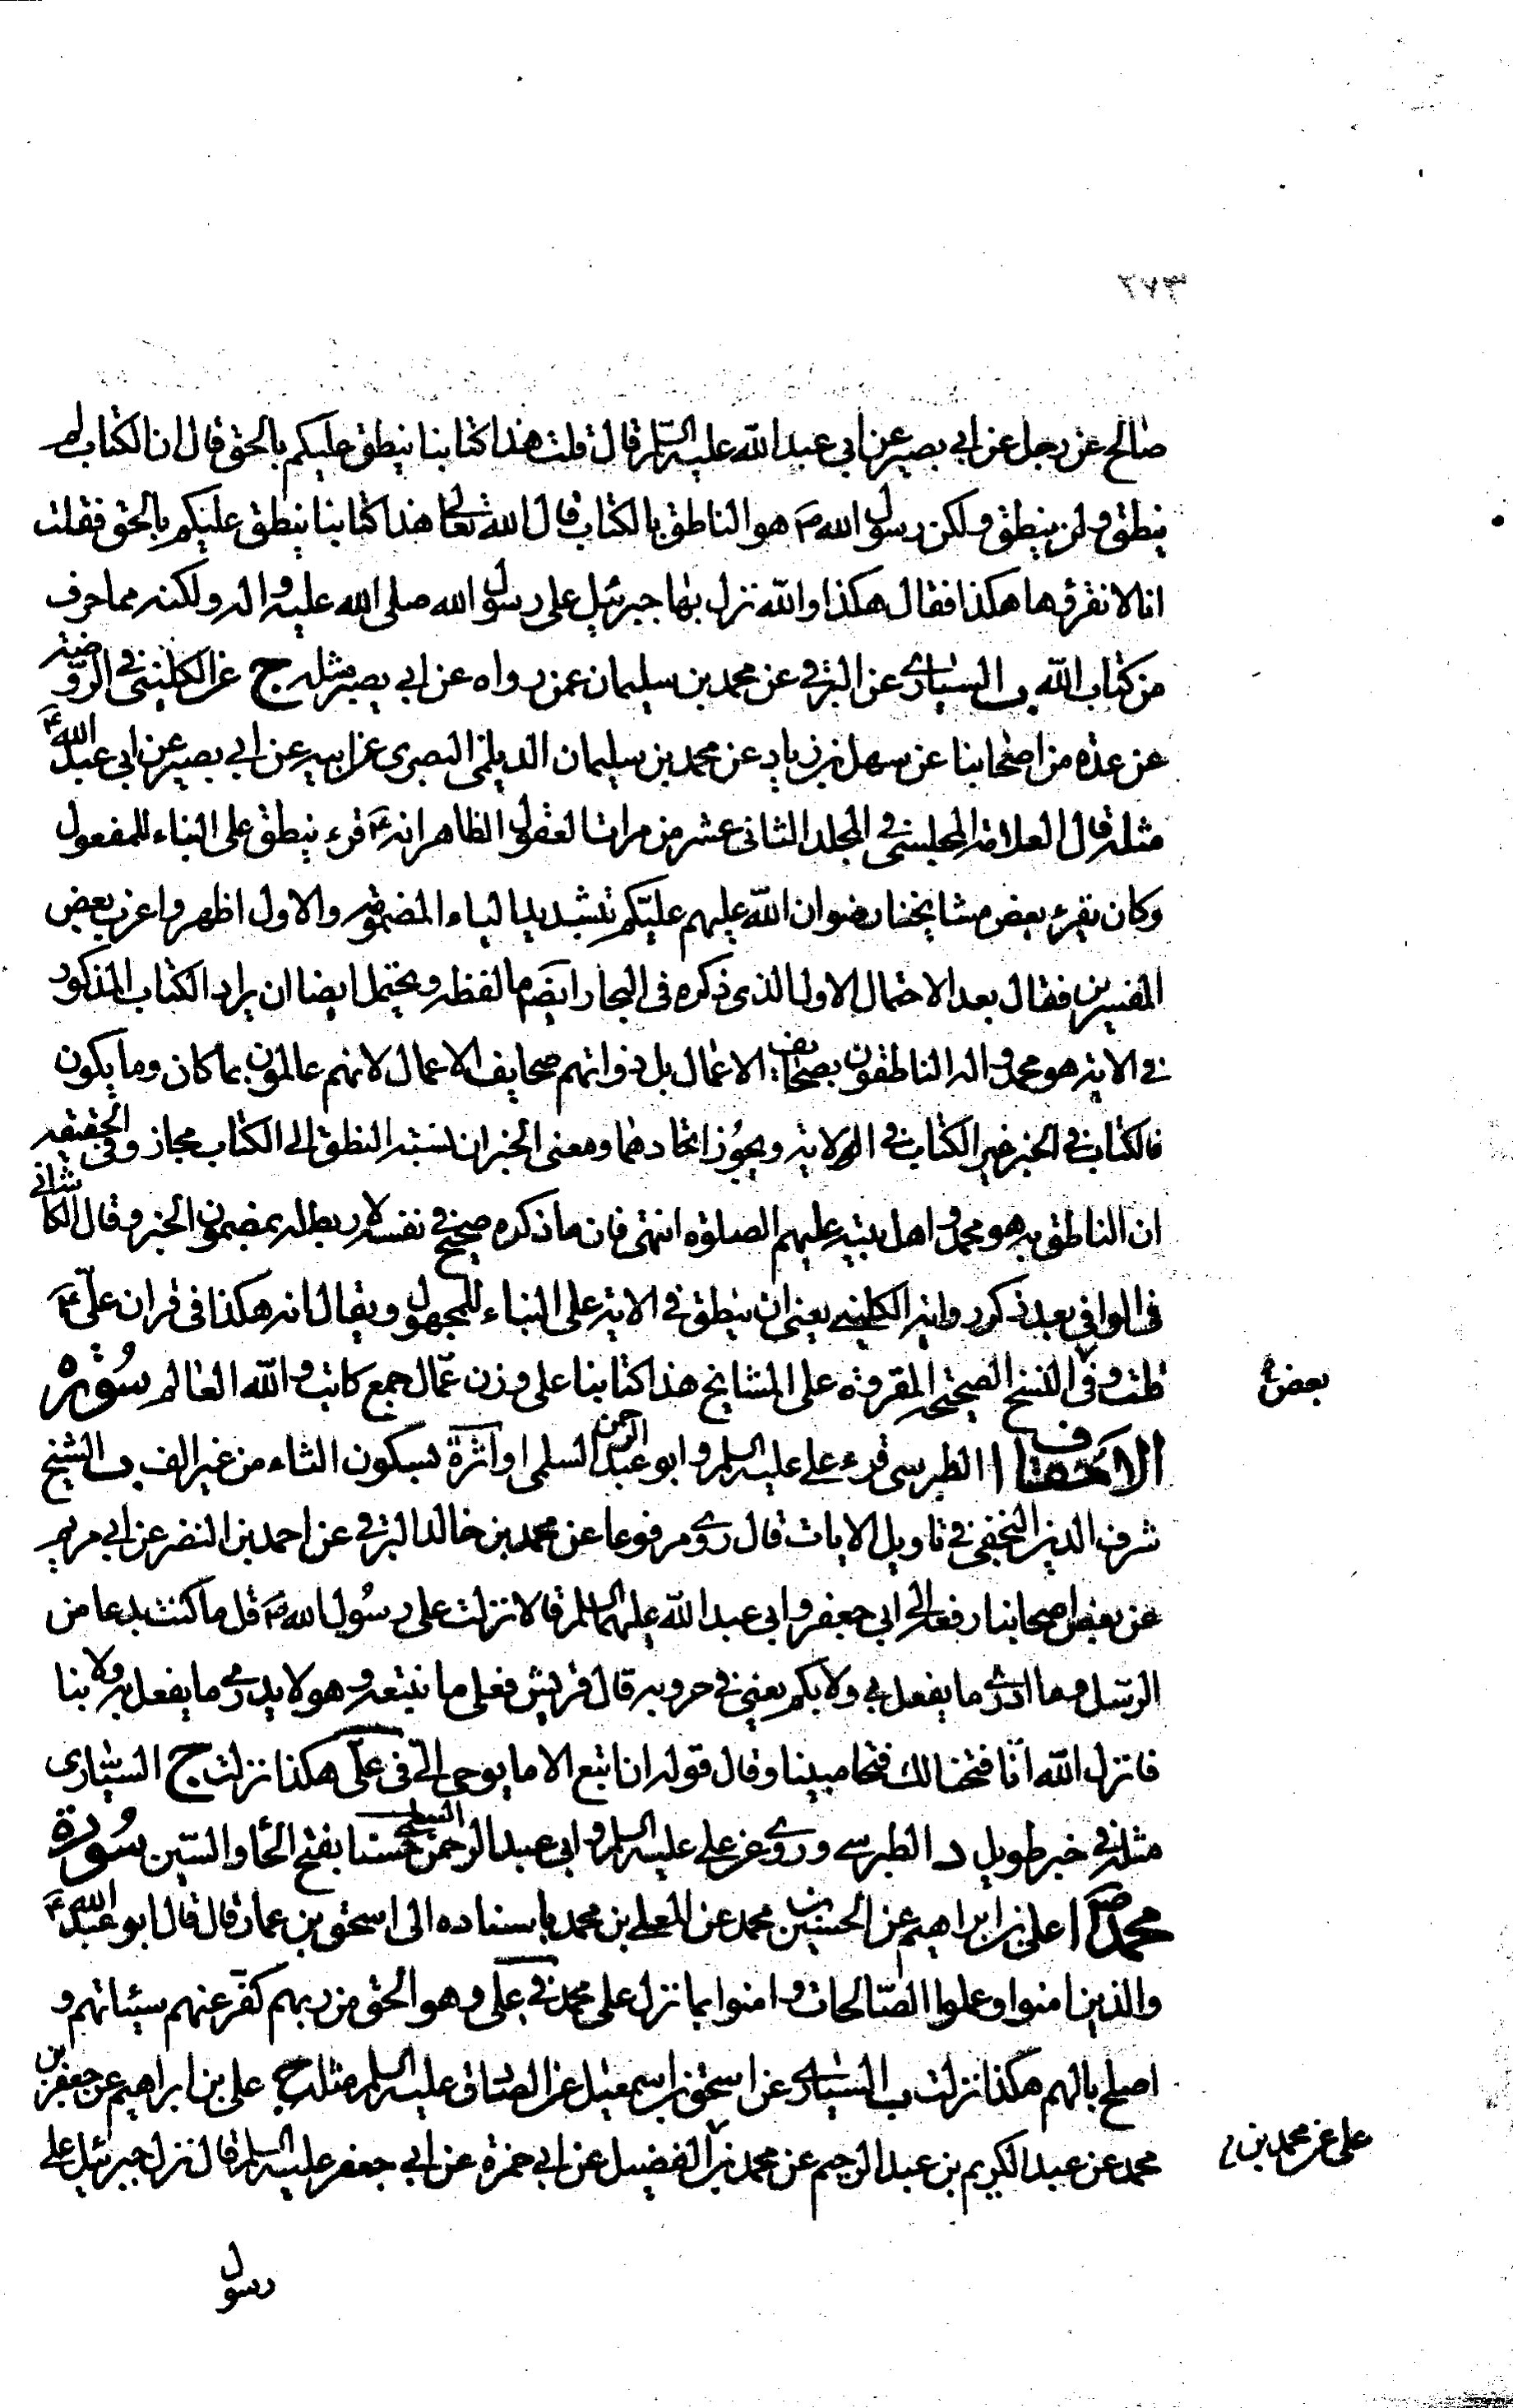 ٢٧٣
صالح عن رجل عن ابي بصير عن ابي عبد الله عليه السلم قال قلت هذا كتابنا ينطق عليكم بالحق قال ان الكتاب لم
ينطق ولن ينطق ولكن رسول الله ص هو الناطق بالكتاب قال الله تعالى هذا كتابنا ينطق عليكم بالحق فقلت
انا لا نقرؤها هكذا فقال هكذا والله نزل بها جبرئيل على رسول الله صلى الله عليه واله ولكنه مما حرف
من كتاب الله ب السياري عن البرقي عن محمد بن سليمان عمن رواه عن ابي بصير مثله ج عن الكليني في الروضة
عن عدة من اصحابنا عن سهل بن زياد عن محمد بن سليمان الديلمي البصري عن ابيه عن ابي بصير عن ابي عبد الله ع
مثله قال العلامة المجلسي في المجلد الثاني عشر من مرات العقول الظاهر انه ع قرء ينطق على البناء للمفعول
وكان يقرء بعض مشايخنا رضوان الله عليهم عليكم بتشديد الياء المضمومة والاول اظهر واغرب بعض
المفسرين فقال بعد الاحتمال الاول الذي ذكره في البحار ايضا ما لفظه ويحتمل ايضا ان يراد الكتاب المذكور
في الاية هو محمد واله الناطقون بصحائف الاعمال بل ذواتهم صحايف الاعمال لانهم عالمون بما كان وما يكون
فالكتاب في الخبر غير الكتاب في الاية ويجوز اتحادهما ومعنى الخبر ان نسبة النطق الى الكتاب مجاز وفي الحقيقة
ان الناطق به هو محمد واهل بيته عليهم الصلوة انتهى فان ما ذكره صحيح في نفسه لا ربط له بمضمون الخبر وقال الكاشاني
في الوافي بعد ذكر رواية الكليني يعني ان ينطق في الاية على البناء للمجهول ويقال انه هكذا في قران علي ع
قلت وفي بعض النسخ الصحيحة المقروة على المشايخ هذا كتابنا على وزن عمال جمع كاتب والله العالم سورة
الاحقاف ا الطبرسي قرء علي عليه السلم وابو عبد الرحمن السلمي او اثرة بسكون الثاء من غير الف ب الشيخ
شرف الدين النجفي في تاويل الايات قال روي مرفوعا عن محمد بن خالد البرقي عن احمد بن النضر عن ابي مريم
عن بعض اصحابنا رفعه الى ابي جعفر وابي عبد الله عليهما السلم قالا نزلت على رسول الله ص قل ما كنت بدعا من
الرسل وما ادري ما يفعل بي ولا بكم يعني في حروبه قال قريش فعلى ما نتبعه وهو لا يدري ما يفعل به ولا بنا
فانزل الله انا فتحنا لك فتحا مبينا وقال قوله ان اتبع الا ما يوحى الي في علي هكذا نزلت ج السياري
مثله في خبر طويل د الطبرسي وروي عن علي عليه السلم وابي عبد الرحمن السلمي حسنا بفتح الحاء والسين سورة
محمد ص ا علي بن ابراهيم عن الحسين بن محمد عن المعلى بن محمد باسناده الى اسحق بن عمار قال قال ابو عبد الله ع
والذين امنوا وعملوا الصالحات وامنوا بما نزل على محمد في علي وهو الحق من ربهم كفر عنهم سيئاتهم و
اصلح بالهم هكذا نزلت ب السياري عن اسحق بن اسمعيل عن الصادق عليه السلم مثله ج علي بن ابراهيم عن جعفر بن
محمد عن عبد الكريم بن عبد الرحيم عن محمد بن علي عن محمد بن الفضيل عن ابي حمزة عن ابي جعفر عليه السلم قال نزل جبرئيل على
رسول